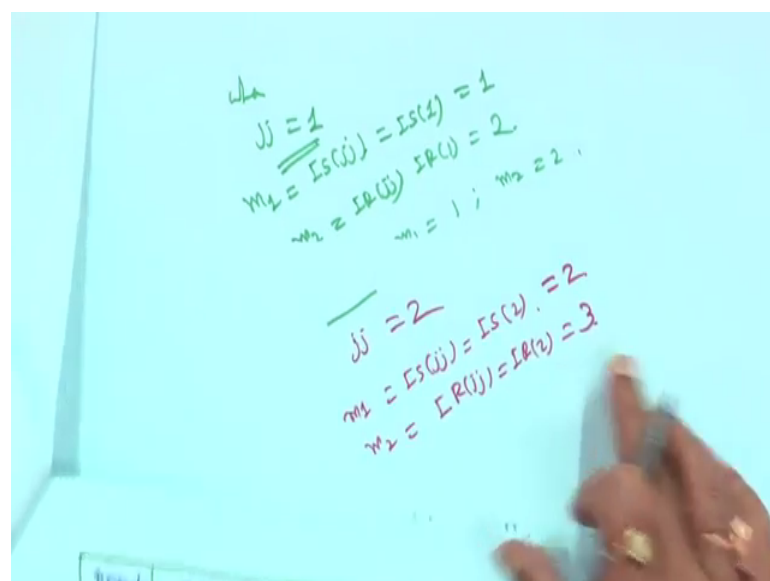 jj = 1
m1 = IS(jj) = IS(1) = 1
m2 = IR(jj) IR(1) = 2.
m1 = 1 ; m2 = 2 .
jj = 2
m1 = IS(jj) = IS(2) . = 2
m2 = IR(jj) = IR(2) = 3